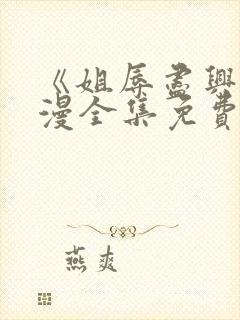 《姐辱尽興
漫全集免費
燕爽